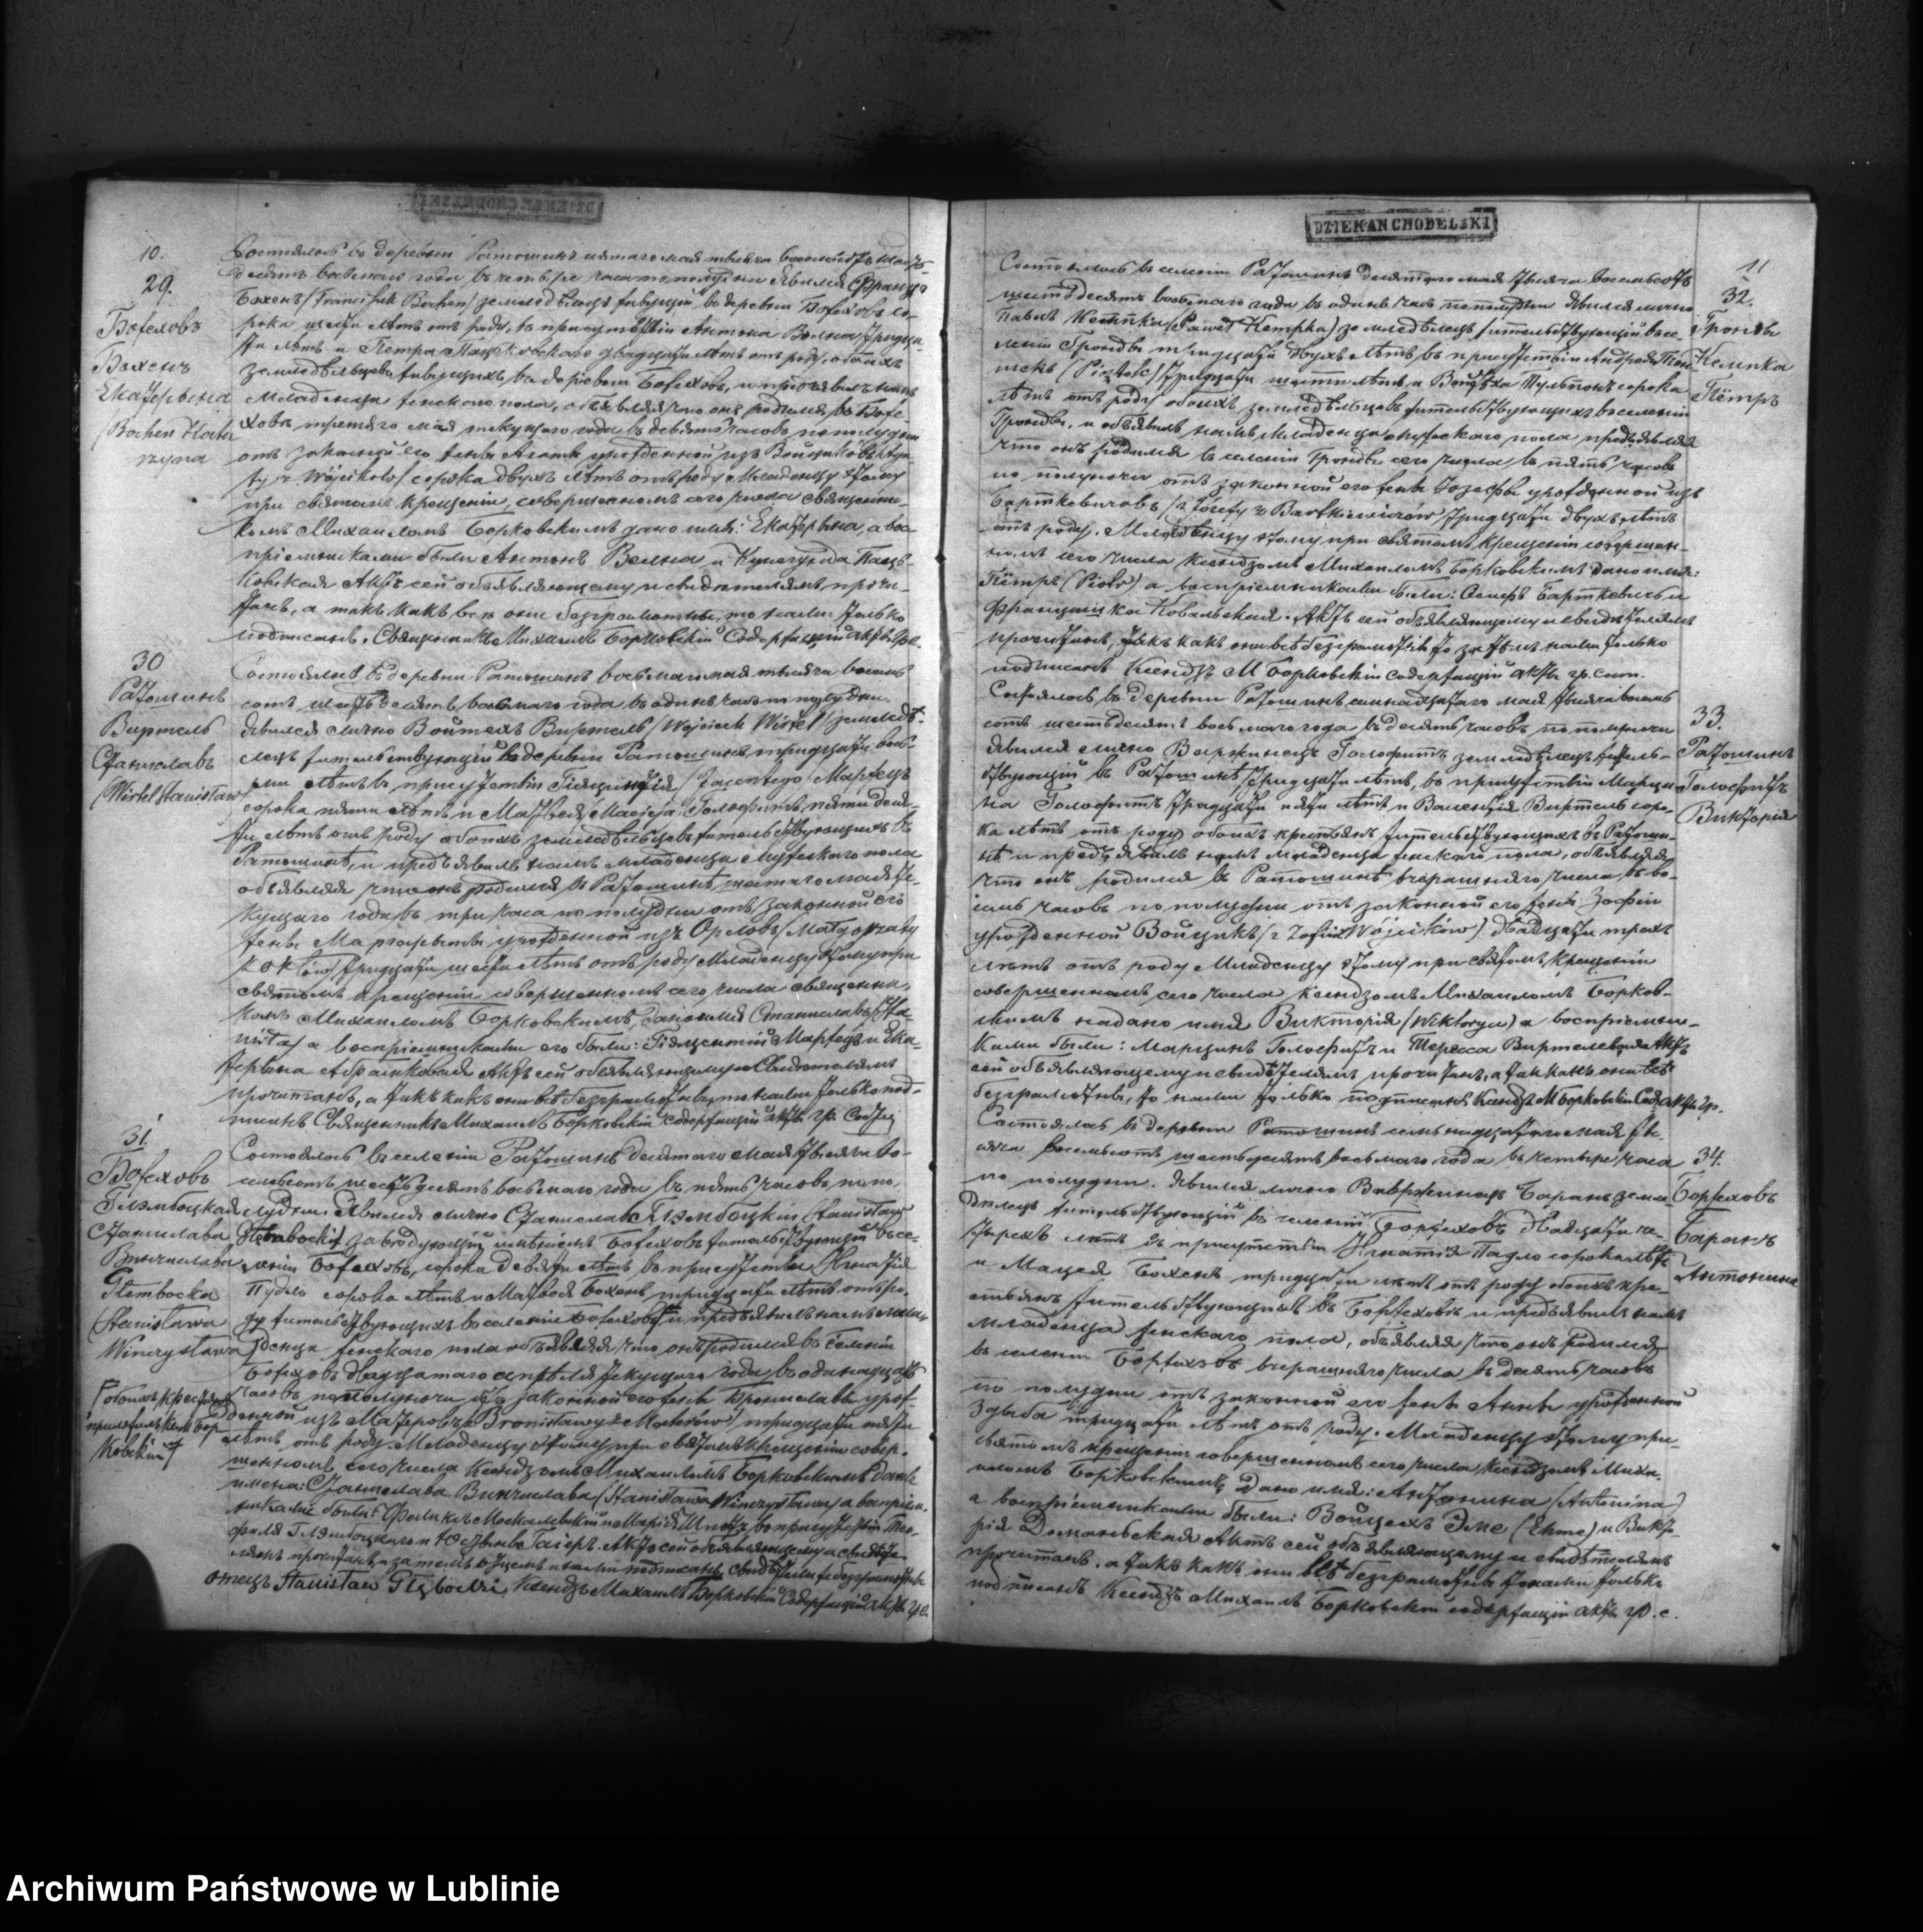 10.
29.
Божеховъ
Бохенъ
Екатерына
(Bochen Kata
rzyna
Состоялось въ деревни Ратошинъ пятаго мая тысяча восемьсотъ шесть
десятъ восьмаго года въ четыре часа по полудни Явился Францъ
Бохенъ (Franciszek Bochen) земледѣлецъ живущій въ деревни Божеховъ со-
рока шести лѣтъ отъ роду, въ присутствіи Антона Волна тридца-
ти лѣтъ и Петра Пацековскаго двадцати лѣтъ отъ роду, обоихъ
земледѣльцевъ живущихъ въ деревни Божеховъ, и предъявилъ намъ
младенца женскаго пола, объявляя что онъ родился въ Боже-
ховъ третяго мая текущаго года въ девять часовъ по полудни
отъ законной его жены Агаты урожденной изъ Войциковъ (Aga-
ty z Wójcików) сорока двухъ лѣтъ отъ роду Младенцу этому
при святомъ крещеніи, совершенномъ сего числа священни-
комъ Михаиломъ Борковскимъ дано имя: Екатерына, а вос-
пріемниками были Антонъ Велна и Кунегунда Пацъ-
ковская Актъ сей объявляющему и свидѣтелямъ прочи-
танъ, а такъ какъ всѣ они безграмотны, то нами только
подписанъ. Священникъ Михаилъ Борковскій Содержащій акты гр. с.
30
Ратошинъ
Виртель
Станиславъ
(Wirtel Stanisław
Состоялось въ деревни Ратошинъ восьмаго мая тысяча восемь
сотъ шестьдесятъ восьмаго года въ одинъ часъ по полудни
Явился лично Войтехъ Виртель (Wojciech Wirtel) земледѣ-
лецъ жительствующій въ деревни Ратошинъ тридцати вось-
ми лѣтъ въ присутствіи Гіяцинтія (Jacentego) Мартецъ
сорока пяти лѣтъ и Матвея (Macieja) Голофитъ пятидеся-
ти лѣтъ отъ роду обоихъ земледѣльцевъ жительствующихъ въ
Ратошинѣ, и предъявилъ намъ младенца мужескаго пола
объявляя что онъ родился въ Ратошинѣ шестаго мая те-
кущаго года въ три часа по полудни отъ законной его
жены Маргареты урожденной изъ Орловъ (Małgorzaty
тридцати шести лѣтъ отъ роду Младенцу этому при
святомъ крещеніи совершенномъ сего числа священни-
комъ Михаиломъ Борковскимъ, дано имя Станиславъ (Sta-
nisław) а воспріемниками его были: Гіяцинтій Мартецъ и Ека-
терына Абрамковая Актъ сей объявляющему и Свидѣтелямъ
прочитанъ, а такъ какъ они всѣ безграмотны, то нами только под-
писанъ Священникъ Михаилъ Борковскій Содержащій акты гр. Сост.
31.
Божеховъ
Глэмбоцкая
Станислава
Винчислава
Głembocka
(Stanisława
Winczysława
Состоялось въ селеніи Ратошинъ десятаго мая тысяча во-
семьсотъ шестьдесятъ восьмаго года въ пять часовъ по по-
лудни Явился лично Станиславъ Глэмбоцкій (Stanisław
Głęboc­ki) завѣдующій имѣніемъ Божеховъ жительствующій въ се-
леніи Божеховъ, сорока девяти лѣтъ въ присутствіи Игнатія
Пудло сорока лѣтъ и Матвея Бохенъ тридцати лѣтъ отъ ро-
ду жительствующихъ въ селеніи Божеховъ и предъявилъ намъ мла-
денца женскаго пола объявляя что онъ родился въ селеніи
Божеховъ двадцатаго апрѣля текущаго года въ одинадцать
часовъ по полуночи отъ законной его жены Брониславы урож-
денной изъ Матеровъ (Bronisławy z Materów) тридцати пяти
лѣтъ отъ роду. Младенцу этому при святомъ крещеніи совер-
шенномъ сего числа Ксендзомъ Михаиломъ Борковскимъ даны
имена: Станислава Винчислава (Stanisława Winczysława) а воспріем-
никами были: Феликсъ Москалевскій и Марія въ присутствіи Тео-
филя Глэмбоцкаго и Актъ сей объявляющему и свидѣте-
лямъ прочитанъ, а затемъ отцемъ и нами подписанъ, свидѣтели же безграмотны
отецъ Stanisław Głęboc­ki, Ксендзъ Михаилъ Борковскій Содержащій акты гр. с.
(обоихъ крестьянъ
Ксн. М. Бор
ковскій)
DZIEKAN CHODELSKI
11
32.
Грондъ
Кемпка
Пётръ
Состоялось въ селеніи Ратошинъ десятаго мая тысяча восемьсотъ
шестьдесятъ восьмаго года въ одинъ часъ по полудни Явился лично
Павелъ Кемпка (Paweł Kempka) земледѣлецъ жительствующій въ се-
леніи Гронды тридцати двухъ лѣтъ въ присутствіи Андрея Піон-
тэкъ (Piątek) тридцати шести лѣтъ и Войцеха сорока
лѣтъ отъ роду обоихъ земледѣльцевъ жительствующихъ въ селеніи
Гронды, и объявилъ намъ Младенца мужескаго пола предъявляя
что онъ родился въ селеніи Гронды сего числа въ пять часовъ
по полуночи отъ законной его жены Іозефы урожденной изъ
Барткевичовъ (z Józefy z Bartkiewiczów) тридцати двухъ лѣтъ
отъ роду. Младенцу этому при святомъ крещеніи совершен-
номъ сего числа Ксендзомъ Михаиломъ Борковскимъ дано имя:
Пётръ (Piotr) а воспріемниками были: Осипъ Барткевичъ и
Францишка Ковальская. Актъ сей объявляющему и свидѣтелямъ
прочитанъ, такъ какъ они всѣ безграмотны то затѣмъ нами только
подписанъ Ксендзъ М Борковскій содержащій акты гр. сост.
33.
Ратошинъ
Голофитъ
Викторія
Состоялось въ деревни Ратошинъ мая тысяча восемь
сотъ шестьдесятъ восьмаго года въ десять часовъ по полуночи
Явился лично Варжинецъ Голофитъ земледѣлецъ житель-
ствующій въ Ратошинѣ, тридцати лѣтъ, въ присутствіи Марци-
на Голофитъ тридцати пяти лѣтъ и Валентія Виртель соро-
ка лѣтъ отъ роду обоихъ крестьянъ жительствующихъ въ Ратоши-
нѣ и предъявилъ намъ младенца женскаго пола, объявляя
что онъ родился въ Ратошинѣ вчерашняго числа въ во-
семь часовъ по полудни отъ законной его жены Зофіи
урожденной Войцикъ (z Zofii z Wójcików) двадцати трехъ
лѣтъ отъ роду Младенцу этому при святомъ крещеніи
совершенномъ сего числа Ксендзомъ Михаиломъ Борков-
скимъ надано имя Викторія (Wiktorya) а воспріемни-
ками были: Марцинъ Голофитъ и Тересса Виртелевая Актъ
сей объявляющему и свидѣтелямъ прочитанъ, а такъ какъ они всѣ
безграмотны, то нами только подписанъ Ксендзъ М Борковскій Сод. акты гр.
34.
Боржеховъ
Баранъ
Антонина
Состоялось въ деревни Ратошинъ семьнадцатаго мая ты-
сяча восемьсотъ шестьдесятъ восьмаго года въ четыре часа
по полудни. Явился лично Вавржинецъ Баранъ земле-
дѣлецъ жительствующій въ селеніи Боржеховъ двадцати че-
тырехъ лѣтъ въ присутствіи Игнатія Падло сорока лѣтъ
и Мацея Бохенъ тридцати лѣтъ отъ роду обоихъ кре-
стьянъ жительствующихъ въ Боржеховѣ и предъявилъ намъ
младенца женскаго пола, объявляя что онъ родился
въ селеніи Боржеховъ вчерашняго числа въ десять часовъ
по полудни отъ законной его жены Анны урожденной
Здыба тридцати лѣтъ отъ роду. Младенцу этому при
святомъ крещеніи совершенномъ сего числа Ксендзомъ Миха-
иломъ Борковскимъ, дано имя: Антонина (Antonina)
а воспріемниками были: Войцехъ Эме (Ehme) и Викто-
рія Доманьская Актъ сей объявляющему и свидѣтелямъ
прочитанъ, а такъ какъ они всѣ безграмотны то нами только
подписанъ Ксендзъ Михаилъ Борковскій содержащій акты гр. с.
Archiwum Państwowe w Lublinie